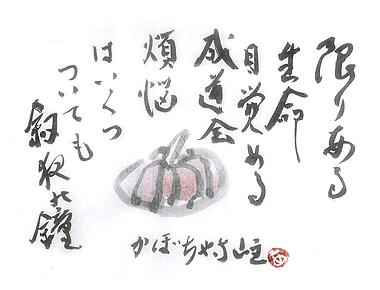 限りある
生命
目覚める
成道会
煩悩
はいくつ
ついても
除夜の鐘
かぼちゃ